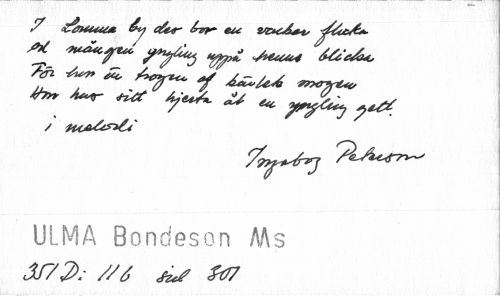 I Lomma by der bor en vacker flicka
och mången yngling uppå henne blicka
För hon är trogen af kärlek mogen
Hon har sitt hjerta åt en yngling gett.
i melodi
Ingeborg Peterson
ULMA Bondeson Ms
351 D: 116 sid 301